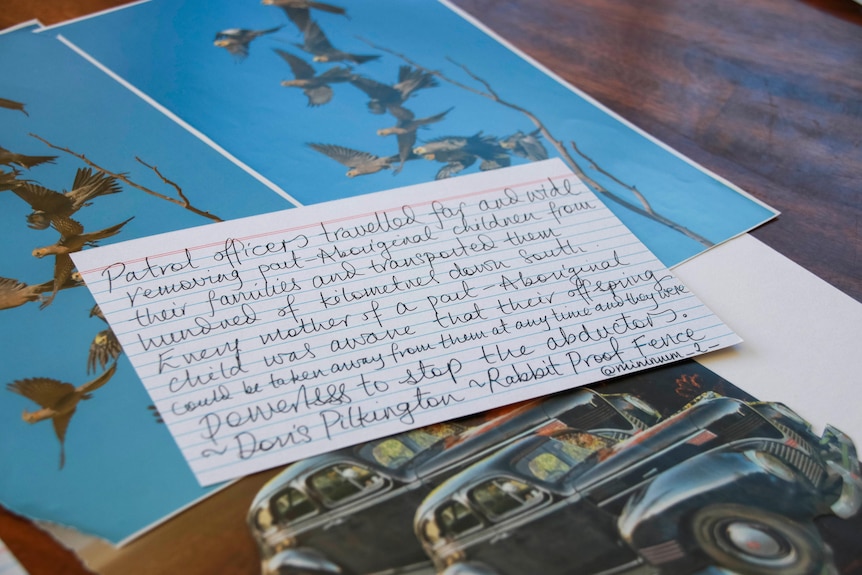 Patrol officers travelled far and wide
removing part-Aboriginal children from
their families and transported them
hundred of kilometres down south.
Every mother of a part-Aboriginal
child was aware that their offspring
could be taken away from them at any time and they were
powerless to stop the abductors.
~ Doris Pilkington ~ Rabbit Proof Fence
@mininum_2_